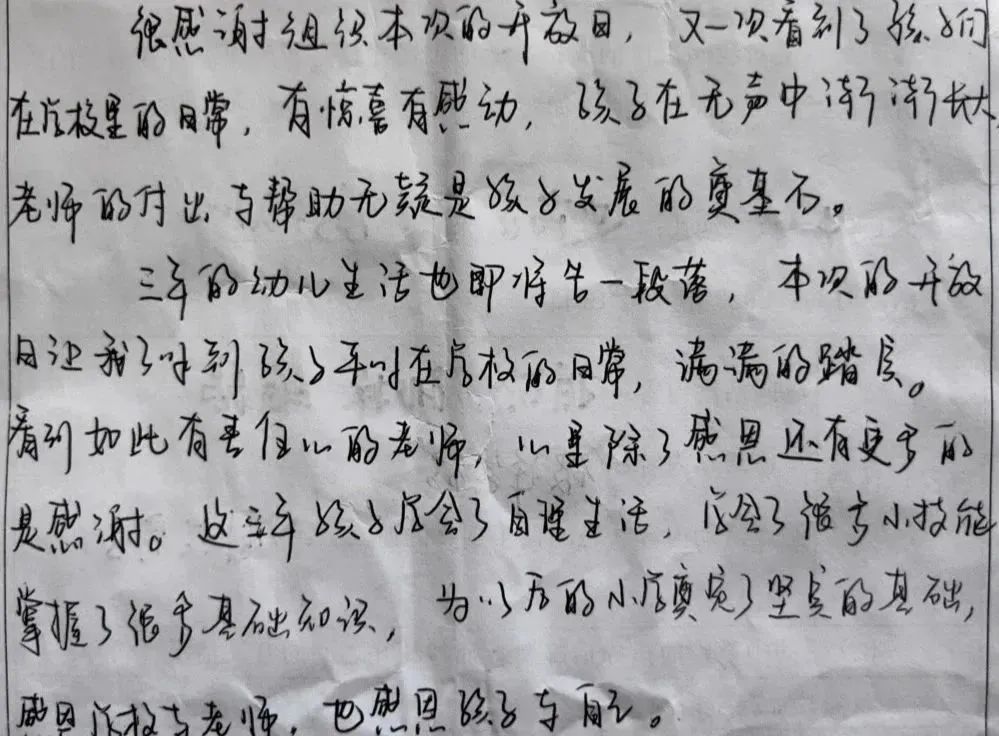 很感谢组织本次的开放日，又一次看到了孩子们
在学校里的日常，有惊喜有感动，孩子在无声中渐渐长大
老师的付出与帮助无疑是孩子发展的奠基石。
三年的幼儿生活也即将告一段落，本次的开放
日让我了吁到孩子平时在学校的日常，满满的踏实。
看到如此有责任心的老师，心里除了感恩还有更多的
是感谢。这三年孩子学会了自理生活，学会了很多小技能
掌握了很多基础知识，为以后的小学奠定了坚实的基础，
感恩学校与老师，也感恩孩子与自己。